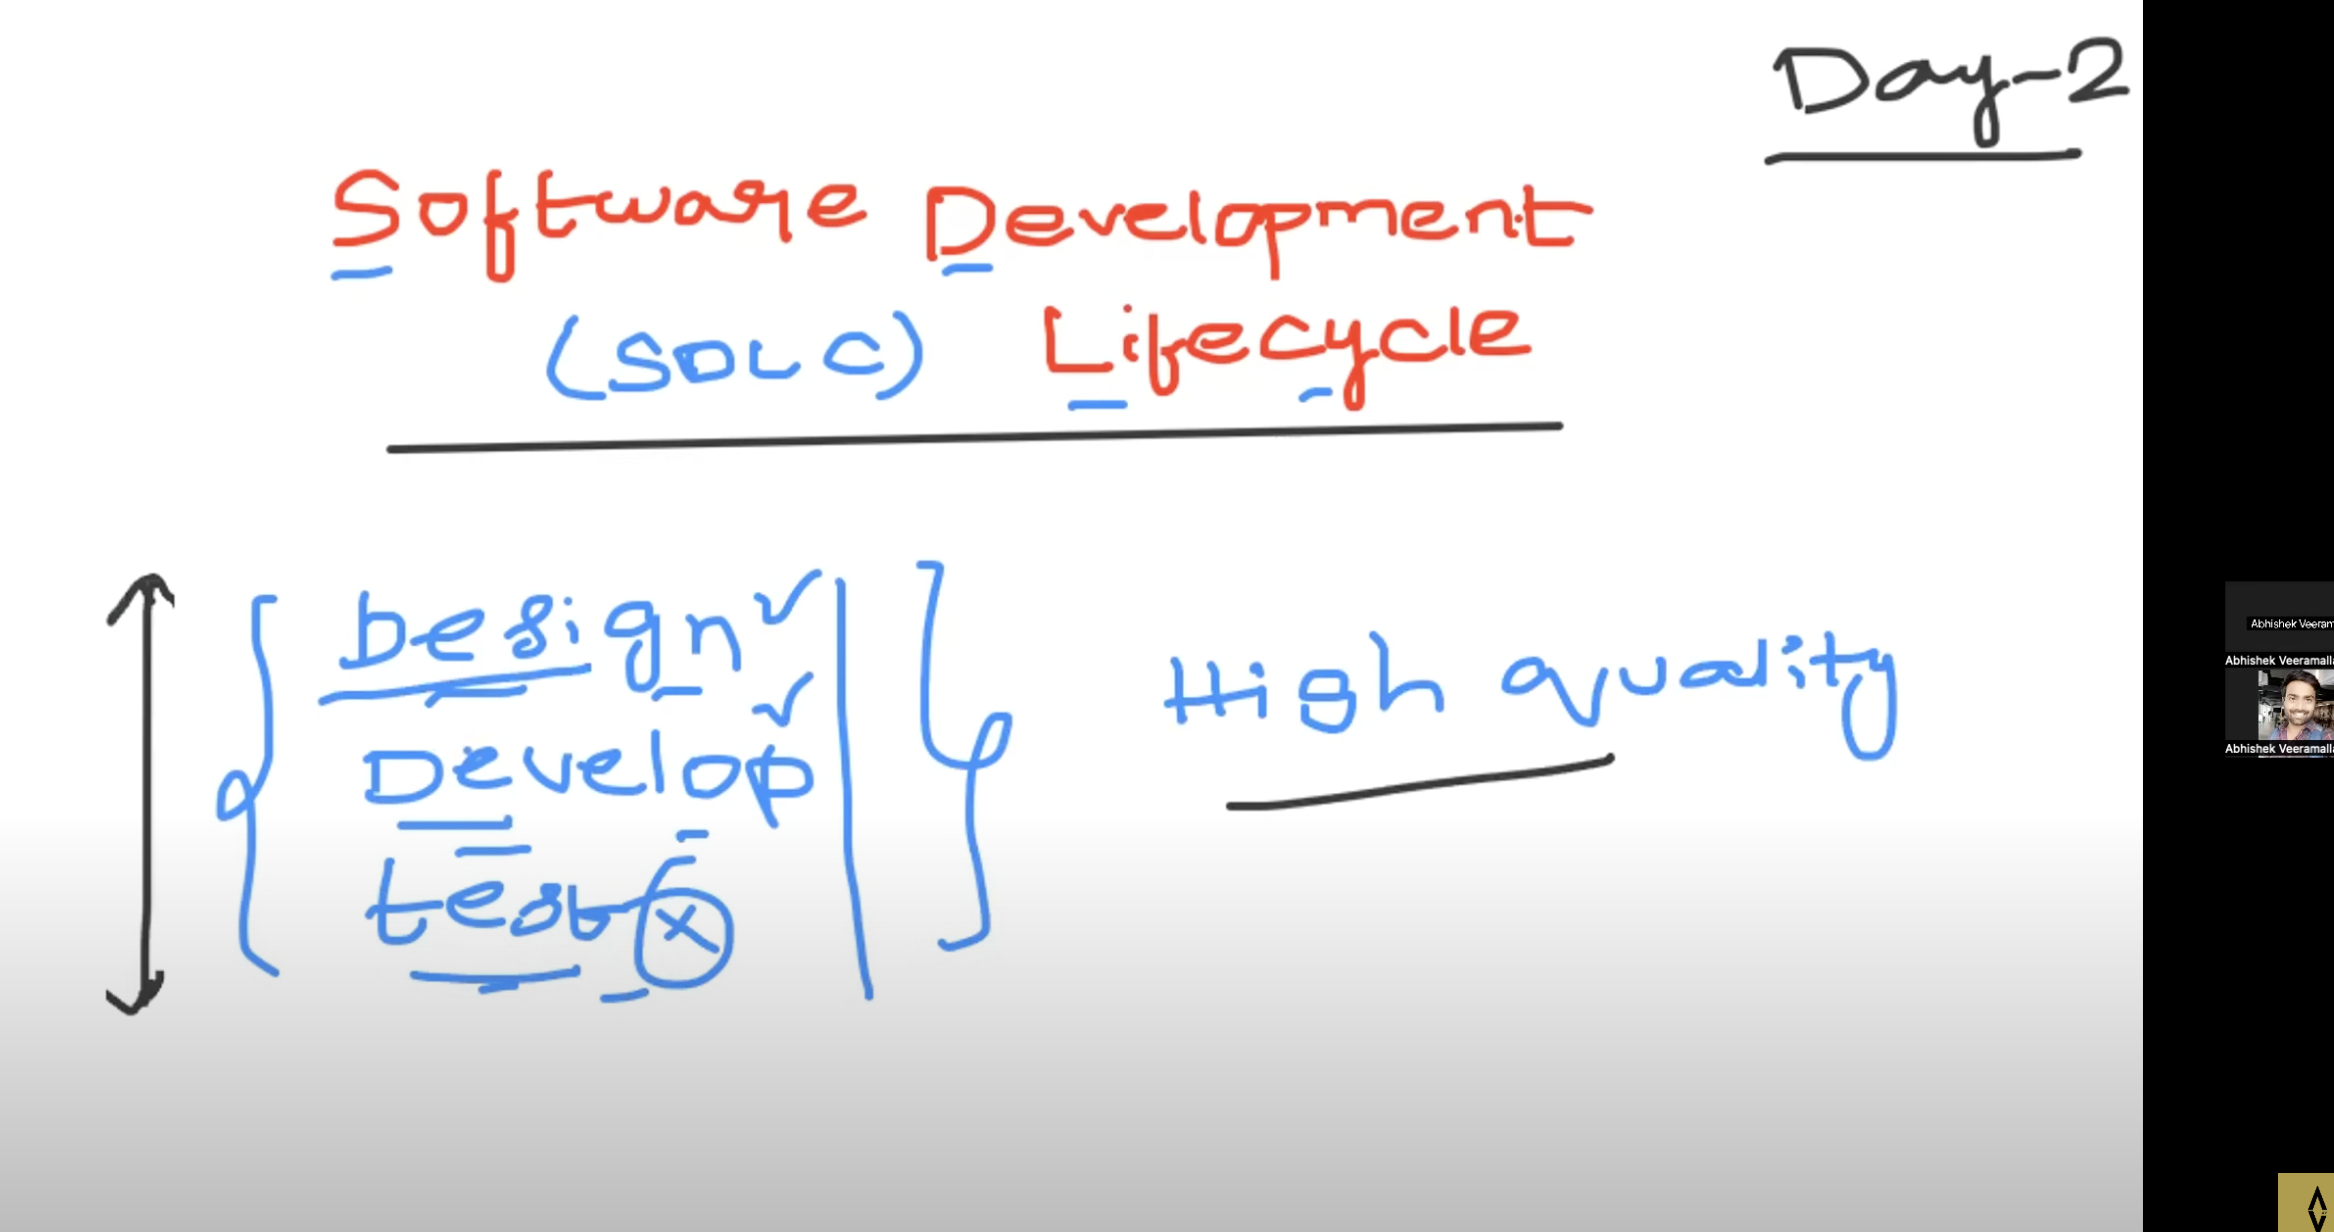 Day-2
Software Development
(SDLC) Lifecycle
Design ✓
Develop ✓
High quality
test ⓧ
Abhishek Veeram
Abhishek Veeramall
Abhishek Veeramall